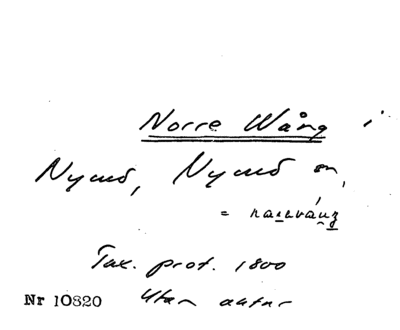 Norre Wång i
Nymö, Nymö sn,
=
Tax. prot. 1800
Nr 10820 Utan antar